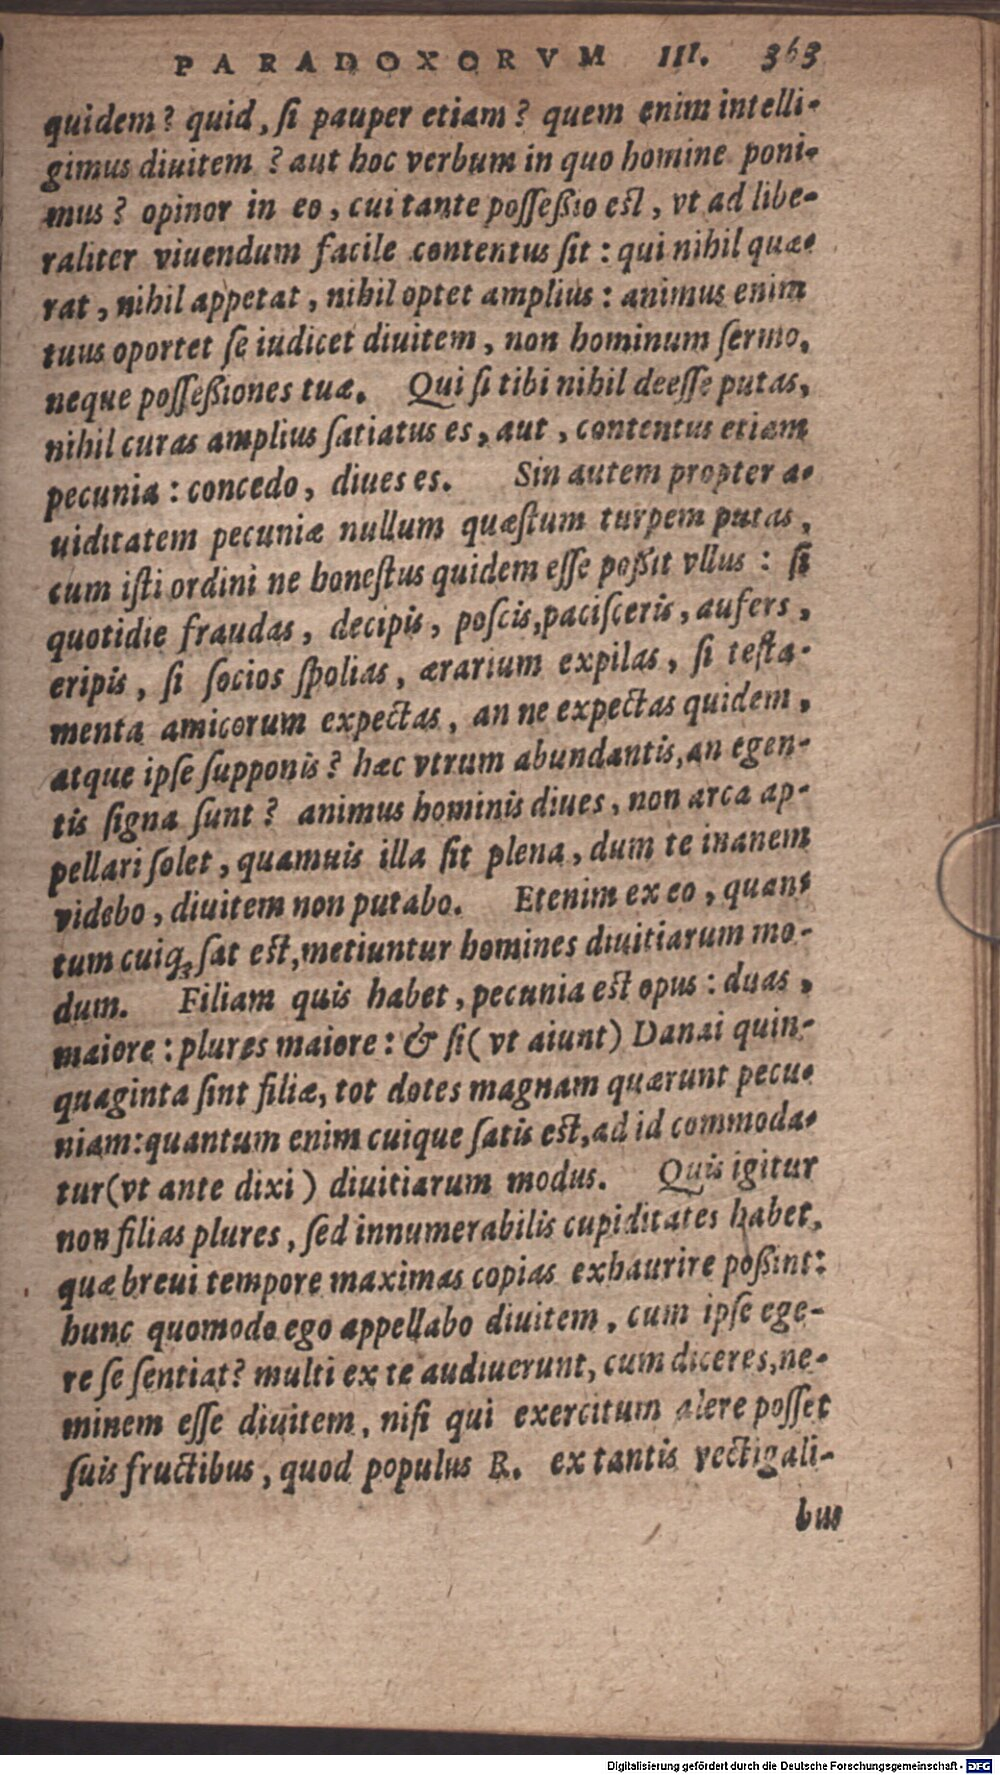 PARADOXORVM III. 363
quidem? quid, ſi pauper etiam? quem enim intelli-
gimus diuitem? aut hoc verbum in quo homine poni-
mus? opinor in eo, cui tante poſſeßio eſt, vt ad libe-
raliter viuendum facile contentus ſit: qui nihil quæ-
rat, nihil appetat, nihil optet amplius: animus enim
tuus oportet ſe iudicet diuitem, non hominum ſermo,
neque poſſeßiones tuæ. Qui ſi tibi nihil deeſſe putas,
nihil curas amplius ſatiatus es, aut, contentus etiam
pecunia: concedo, diues es. Sin autem propter a-
uiditatem pecuniæ nullum quæſtum turpem putas,
cum iſti ordini ne honeſtus quidem eſſe poßit vllus: ſi
quotidie fraudas, decipis, poſcis, paciſceris, aufers,
eripis, ſi ſocios ſpolias, ærarium expilas, ſi teſta-
menta amicorum expectas, an ne expectas quidem,
atque ipſe ſupponis? hæc vtrum abundantis, an egen-
tis ſigna ſunt? animus hominis diues, non arca ap-
pellari ſolet, quamuis illa ſit plena, dum te inanem
videbo, diuitem non putabo. Etenim ex eo, quan-
tum cuiq; ſat eſt, metiuntur homines diuitiarum mo-
dum. Filiam quis habet, pecunia eſt opus: duas,
maiore: plures maiore: & ſi (vt aiunt) Danai quin-
quaginta ſint filiæ, tot dotes magnam quærunt pecu-
niam: quantum enim cuique ſatis eſt, ad id commoda-
tur (vt ante dixi) diuitiarum modus. Quis igitur
non filias plures, ſed innumerabilis cupiditates habet,
quæ breui tempore maximas copias exhaurire poßint:
hunc quomodo ego appellabo diuitem, cum ipſe ege-
re ſe ſentiat? multi ex te audiuerunt, cum diceres, ne-
minem eſſe diuitem, niſi qui exercitum alere poſſet
ſuis fructibus, quod populus R. ex tantis vectigali-
bus
Digitalisierung gefördert durch die Deutsche Forschungsgemeinschaft - DFG